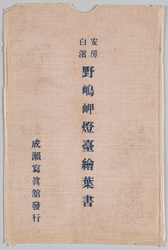 安房
白濱
野嶋岬燈臺繪葉書
成瀬寫眞舘發行